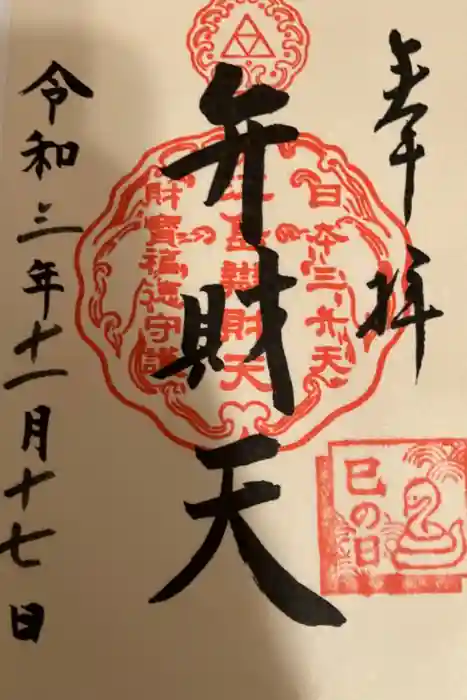 奉拝
日本三大弁天
財寶福徳守護
弁財天
巳の日
令和三年十一月十七日